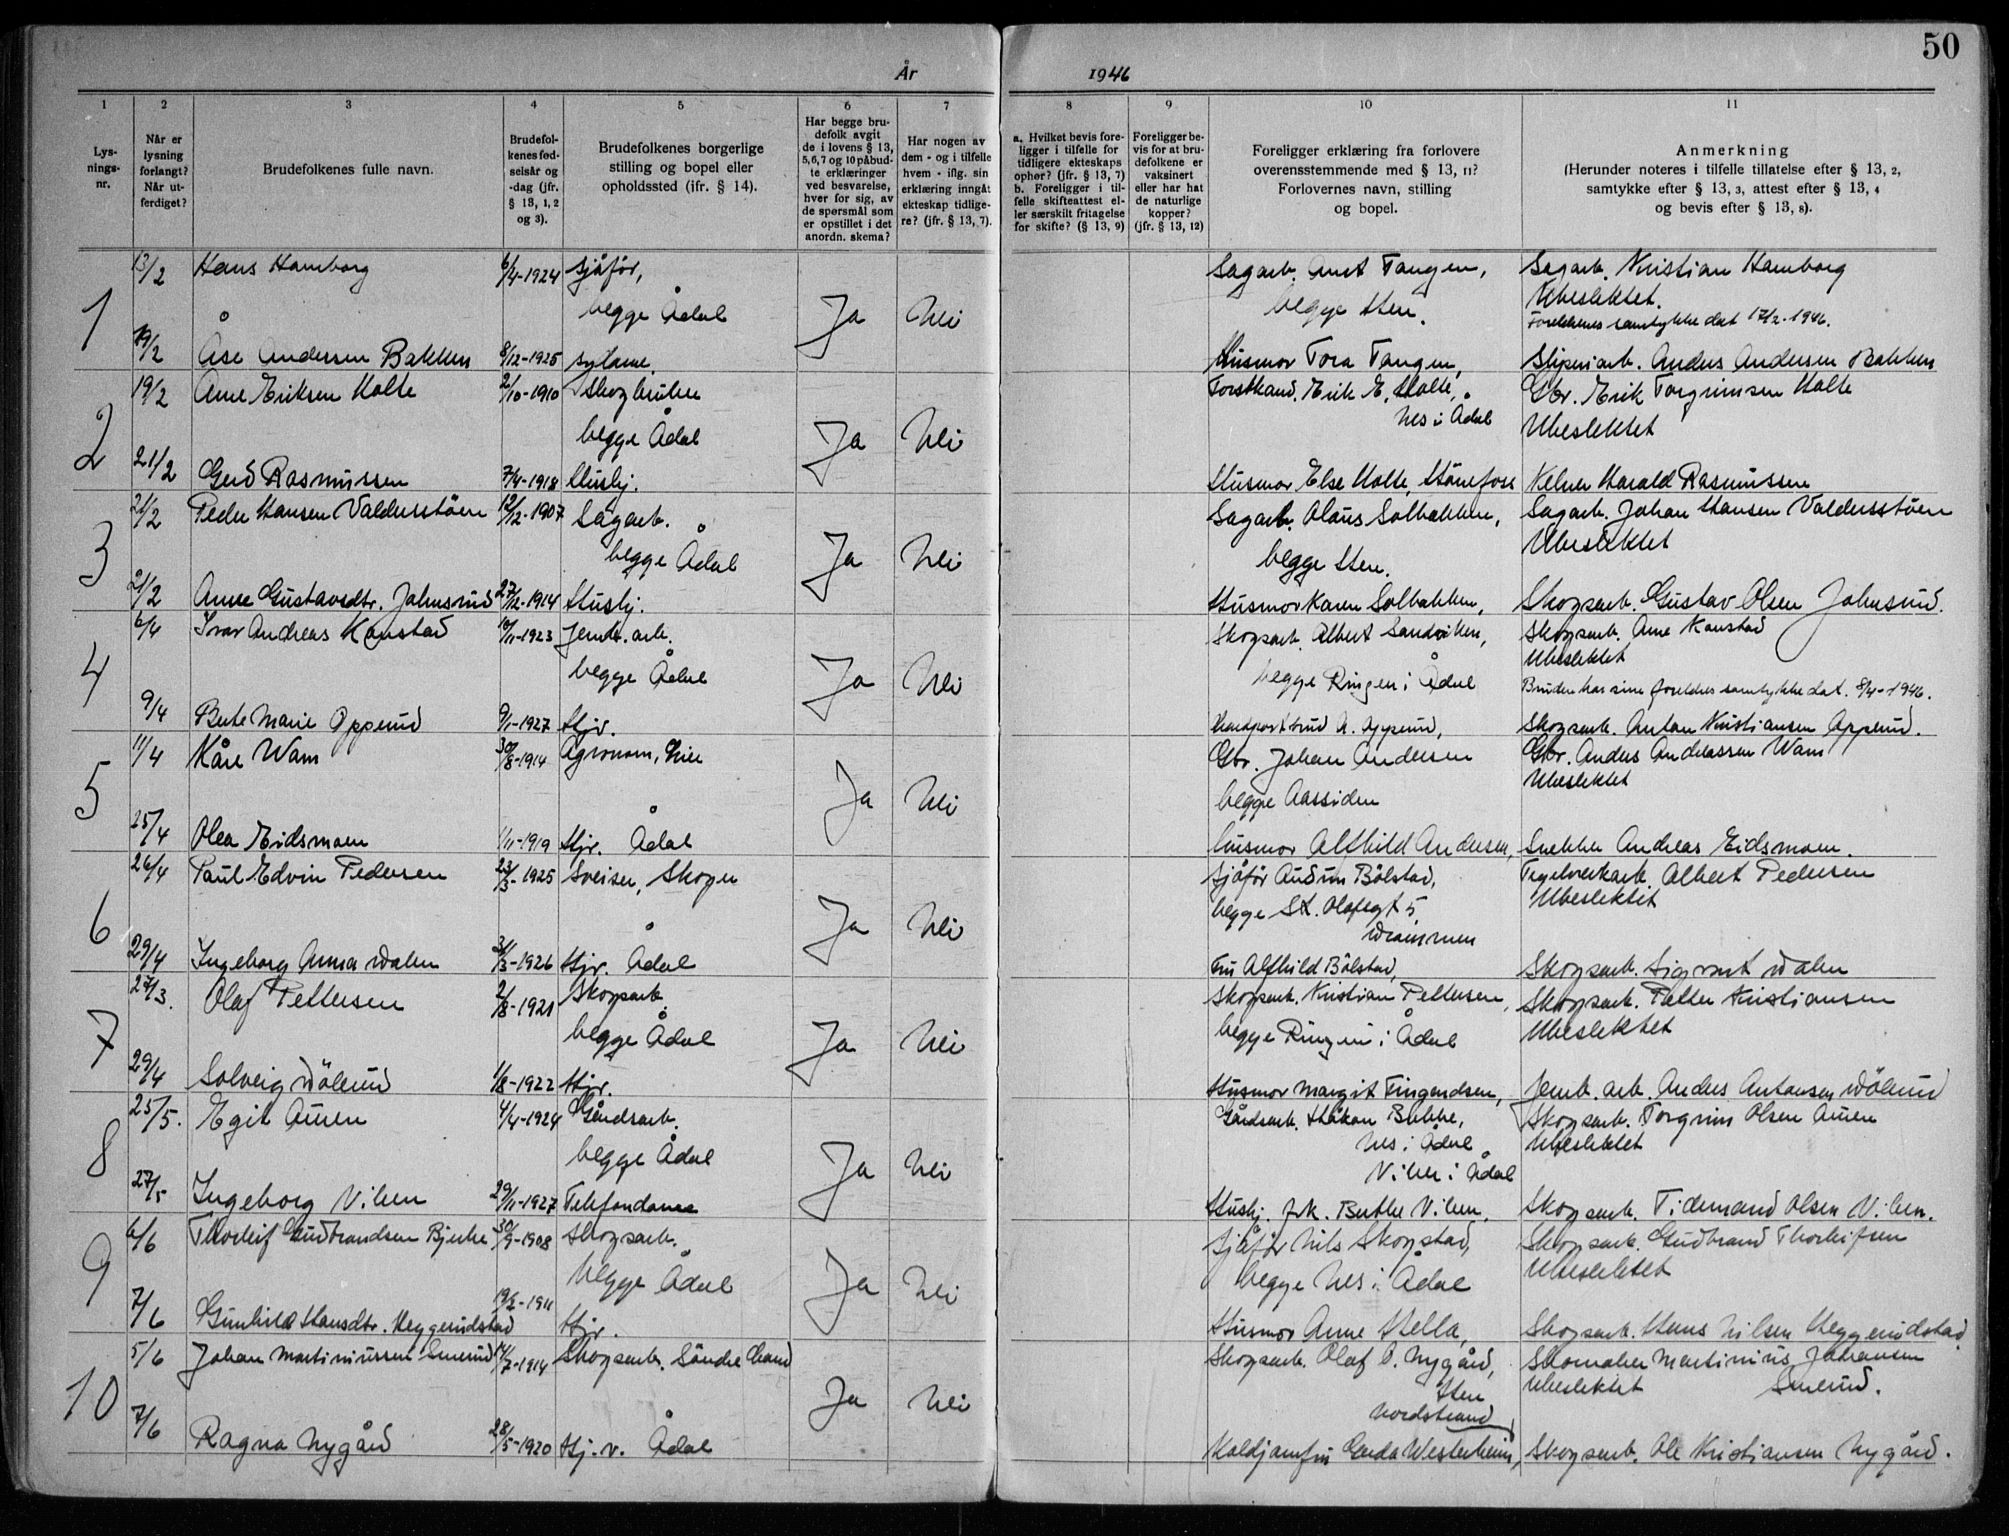 År 1946
50
1 2 3 4 5 6 7 8 9 10 11
Lys-
nings-
nr.
Når er
lysning
forlangt?
Når ut-
ferdiget?
Brudefolkenes fulle navn.
Brudefol-
kenes fød-
selsår og
-dag (jfr.
§ 13, 1, 2
og 3).
Brudefolkenes borgerlige
stilling og bopel eller
opholdssted (ifr. § 14).
Har begge bru-
defolk avgit
de i lovens § 13,
5,6,7 og 10 påbud-
te erklæringer
ved besvarelse,
hver for sig, av
de spørsmål som
er opstillet i det
anordn. skema?
Har nogen av
dem - og i tilfelle
hvem - iflg. sin
erklæring inngåt
ekteskap tidlige-
re? (jfr. § 13, 7).
a. Hvilket bevis fore-
ligger i tilfelle for
tidligere ekteskaps
ophør? (jfr. § 13, 7)
b. Foreligger i til-
felle skifteattest el-
ler særskilt fritagelse
for skifte? (§ 13, 9)
Foreligger be-
vis for at bru-
defolkene er
vaksinert
eller har hat
de naturlige
kopper?
(jfr. § 13, 12)
Foreligger erklæring fra forlovere
overensstemmende med § 13, 11?
Forlovernes navn, stilling
og bopel.
Anmerkning
(Herunder noteres i tilfelle tillatelse efter § 13, 2,
samtykke efter § 13, 3, attest efter § 13, 4
og bevis efter § 13, 8).
13/2 Hans Hamborg 6/4-1924 sjåför, Sagarb. Anst Tangen, Sagarb. Kristian Hamborg
1 begge Ådal Ja Nei begge Sten. Ubeslektet.
Foreldrenes samtykke dat 17/2-1946.
19/2 Åse Andersen Bakken 8/12-1925 sydame. Husmor Tora Tangen, Sliperiarb. Anders Andersen Bakken
19/2 Arne Eriksen Holte 2/10-1910 Skogbruker Forstkand. Erik E. Holte, Gbr. Erik Torgrimsen Holte
2 begge Ådal Ja Nei Nes i Ådal Ubeslektet
21/2 Gerd Rasmussen 7/4-1918 Hushj. Husmor Else Holte, Hönefoss Kelner Harald Rasmussen
21/2 Peder Hansen Valdersstöen 12/12-1907 Sagarb. Sagarb. Olaus Solbakken, Sagarb. Johan Hansen Valdersstöen
3 begge Ådal Ja Nei begge Sten. Ubeslektet
21/2 Anne Gustavsdtr. Johnsrud 27/12-1914 Hushj. Husmor Karen Solbakken, Skogsarb. Gustav Olsen Johnsrud.
6/4 Ivar Andreas Kanstad 10/11-1923 Jernb. arb. Skogsarb. Albert Sandviken, Skogsarb. Arne Kanstad
4 begge Ådal Ja Nei begge Ringen i Ådal Ubeslektet
Bruden har sine foreldres samtykke dat. 8/4-1946.
9/4 Berte Marie Opperud 9/1-1927 Hjv. Landpostbud A. Opperud, Skogsarb. Anton Kristiansen Opperud.
11/4 Kåre Wam 30/8-1914 Agronom, Lier Gbr. Johan Andersen Gbr. Anders Andreassen Wam
5 Ja Nei begge Aassiden Ubeslektet
25/4 Olea Eidsmoen 1/11-1919 Hjv. Ådal husmor Alfhild Andersen, Snekker Andreas Eidsmoen.
26/4 Paul Edvin Pedersen 23/3-1925 Sveiser, Skoger Sjåför Audun Bölstad, Teglverkarb. Albert Pedersen
6 Ja Nei begge St. Olafsgt 5, Drammen Ubeslektet
29/4 Ingeborg Anna Dalen 31/3-1926 Hjv. Ådal Fru Alfhild Bölstad, Skogsarb. Sigvart Dalen
27/3. Olaf Pettersen 2/8-1921 Skogsarb. Skogsarb. Kristian Pettersen, Skogsarb. Petter Kristiansen
7 begge Ådal Ja Nei begge Ringen i Ådal Ubeslektet
29/4 Solveig Dölerud 1/8-1922 Hjv. Husmor Margit Fingardsen, Jernb. arb. Anders Antonsen Dölerud
25/5. Egil Auren 4/4-1924 Gårdsarb. Gårdsarb. Håkon Bakke, Skogsarb. Torgrim Olsen Auren
8 begge Ådal Ja Nei Nes i Ådal Ubeslektet
Viken i Ådal
27/5 Ingeborg Viken 29/11-1927 Telefondame Hushj. frk. Berthe Viken, Skogsarb. Tidemand Olsen Viken.
6/6 Thorleif Gudbrandsen Bjerke 30/9-1908 Skogsarb. Sjåför Nils Skogstad, Skogsarb. Gudbrand Thorleifsen
9 begge Ådal Ja Nei begge Nes i Ådal Ubeslektet
7/6 Gunhild Hansdtr. Heggerudstad 19/2-1911 Hjv. Husmor Anne Hella, Skogsarb. Hans Nilsen Heggerudstad
5/6 Johan Martiniussen Smerud 14/7-1914 Skogsarb. Söndre Land Skogsarb. Olaf O. Nygård, Skomaker Martinius Johansen
10 Ja Nei Sten Ubeslektet Smerud.
Nordstrand
7/6 Ragna Nygård 28/5-1920 Hj.v. Ådal Koldjomfru Gerda Westerheim, Skogsarb. Ole Kristiansen Nygård.